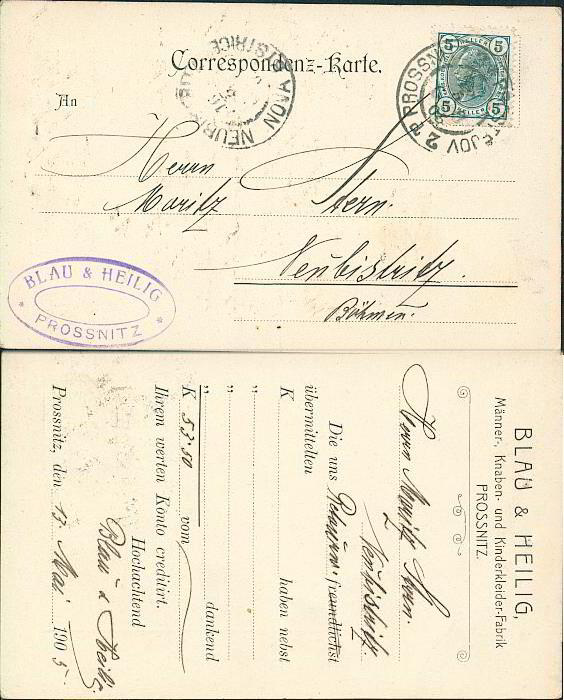 Correspondenz-Karte.
An
Herrn
Moritz Stern.
Neubistritz.
Böhmen.
BLAU & HEILIG
* PROSSNITZ *
5 5
5 5
HELLER
PROSSNITZ
2
NOVÁ BYSTŘICE
BLAU & HEILIG,
Männer-, Knaben- und Kinderkleider-Fabrik
PROSSNITZ.
Herrn Moritz Stern
Neubistritz
Die uns Retouren freundlichst
übermittelten
K haben nebst
" "
" "
" " dankend
K 53·50 vom
Ihrem werten Konto creditirt.
Hochachtend
Blau & Heilig
Prossnitz, den 17. Mai 1905